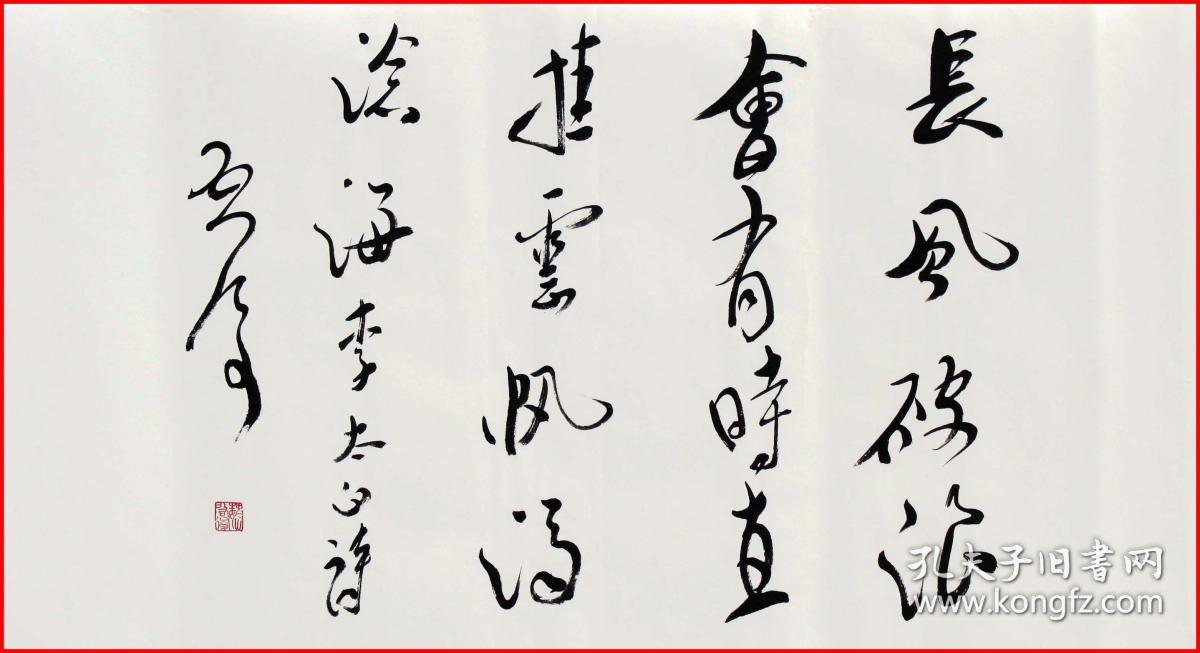 長風破浪
會有時直
挂雲帆濟
滄海李太白詩
孔夫子旧書网
www.kongfz.com